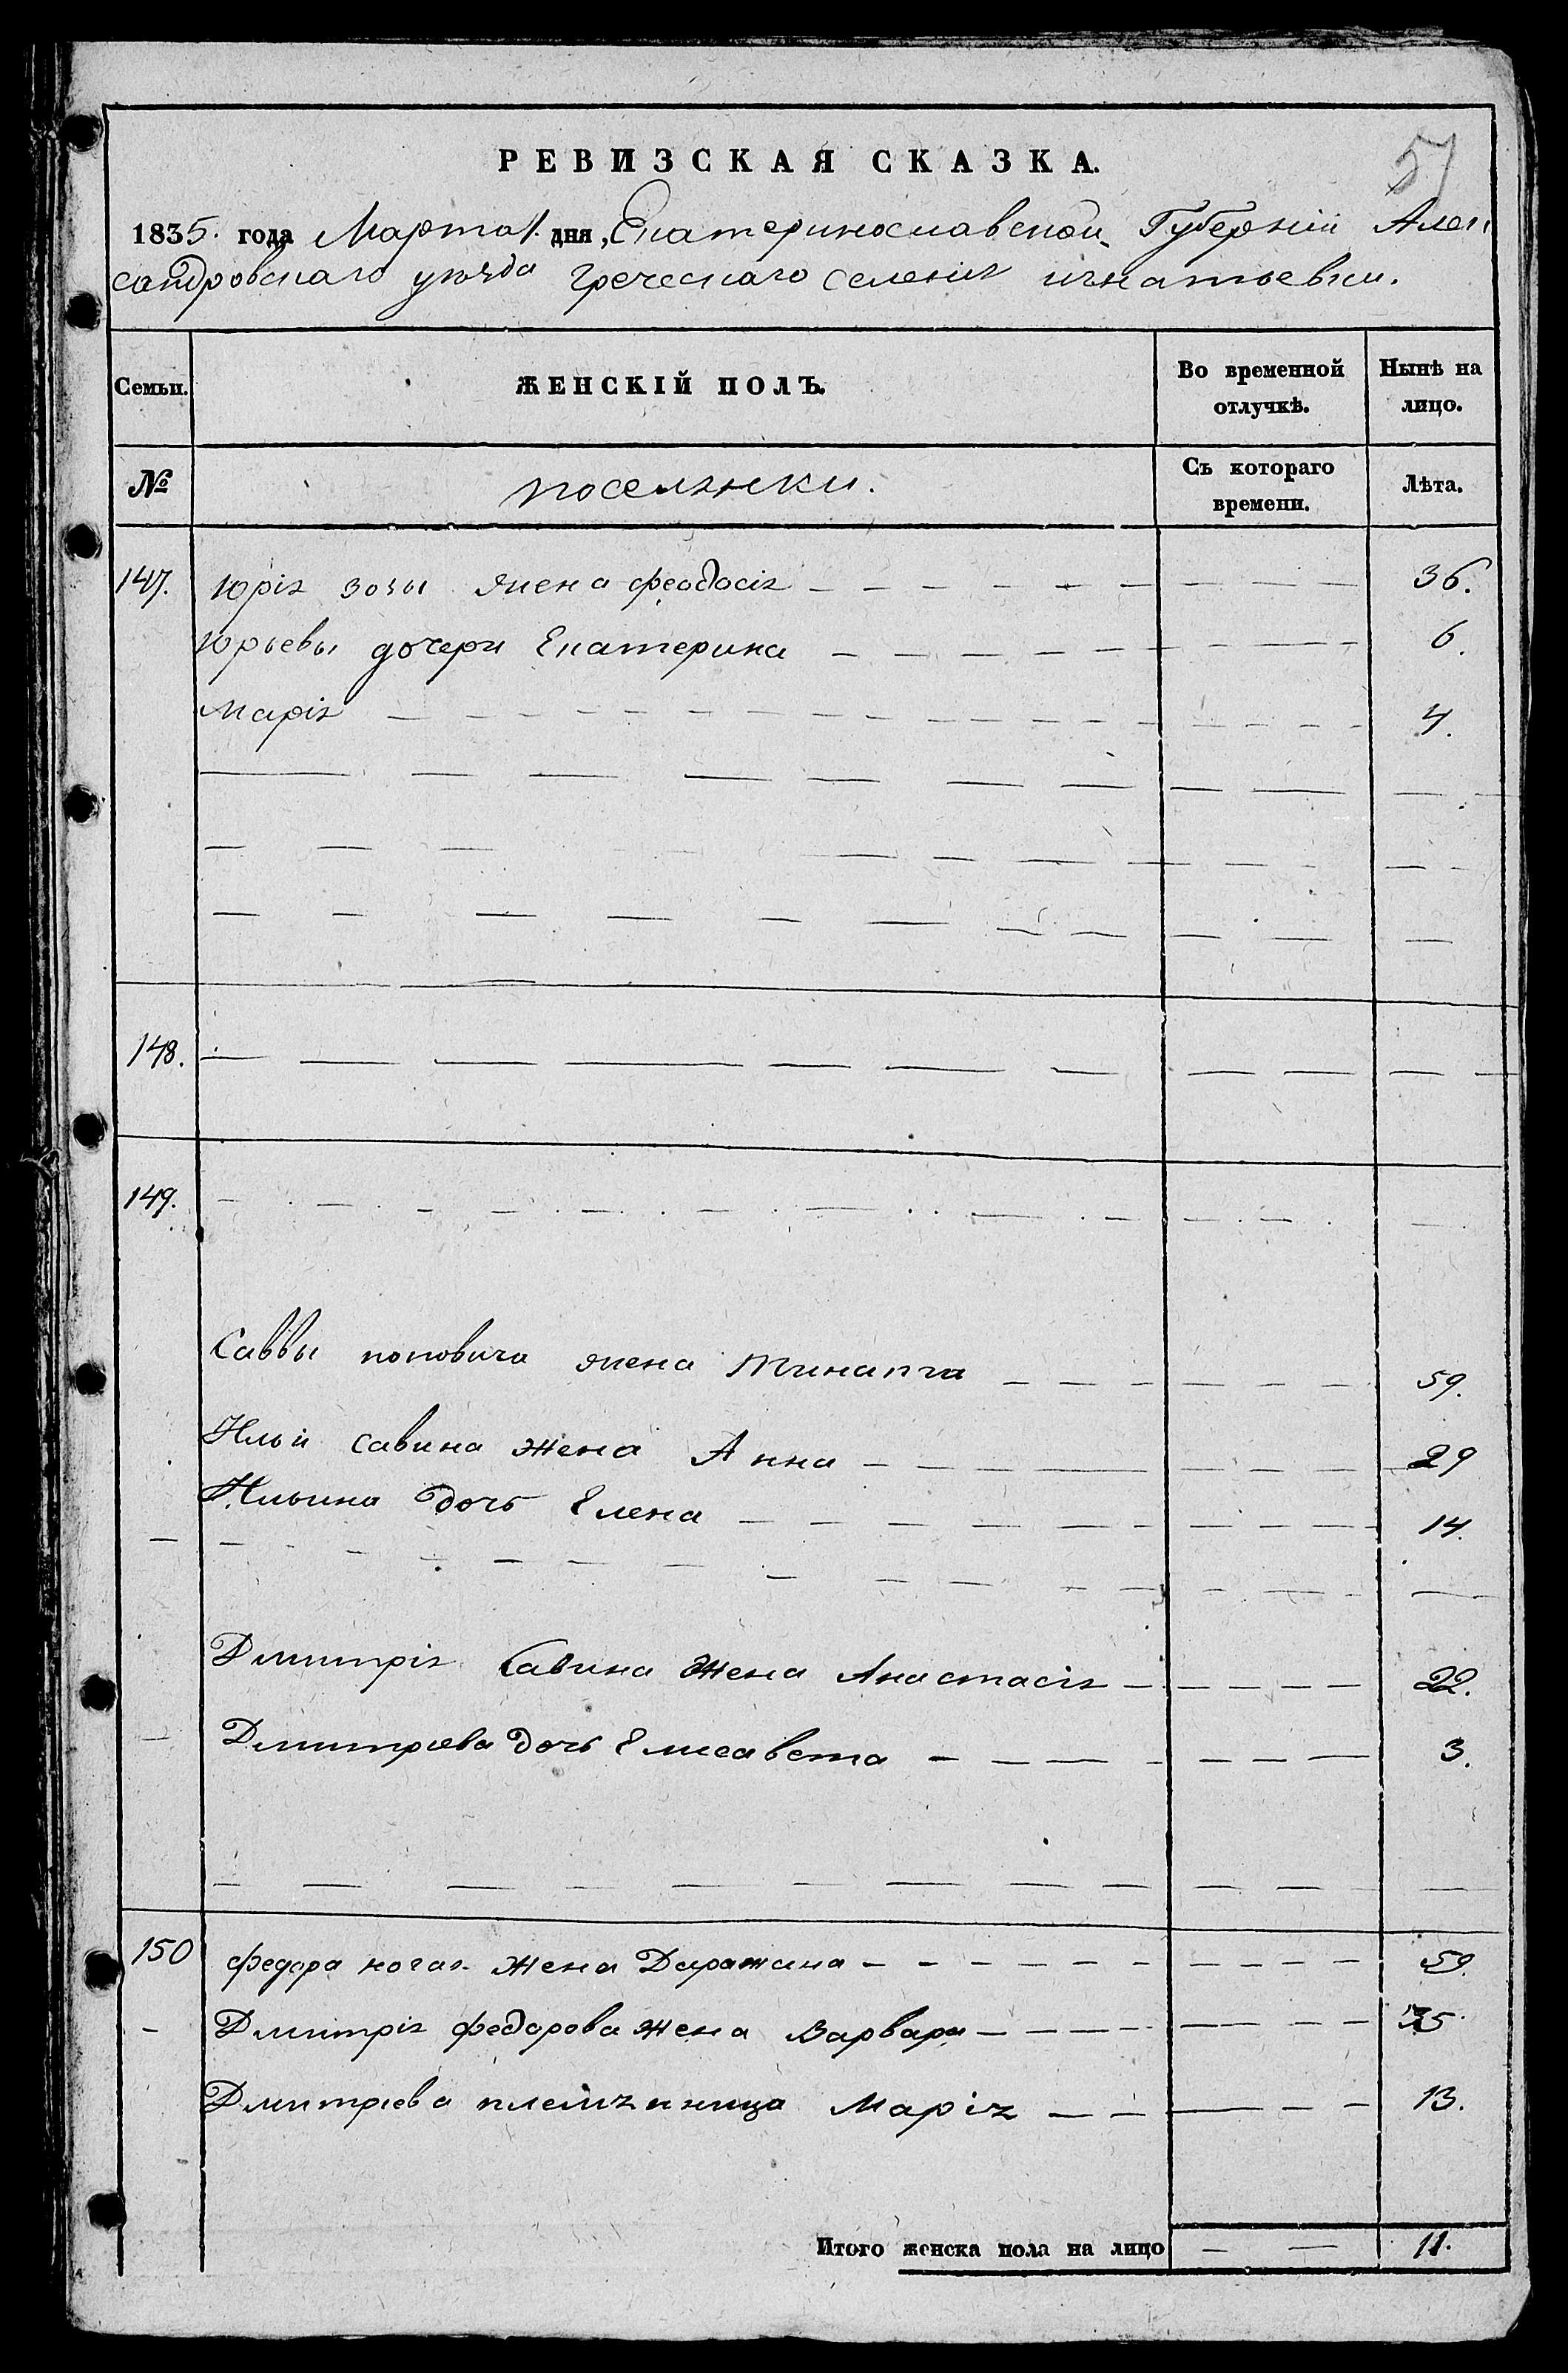 57
РЕВИЗСКАЯ СКАЗКА.
1835. года Марта 1. дня, Екатеринославской Губерніи Алек
сандровскаго уѣзда греческаго селенія игнатьевки.
Семьи.
ЖЕНСКІЙ ПОЛЪ.
Во временной отлучкѣ.
Нынѣ на лицо.
№
поселянки.
Съ котораго времени.
Лѣта.
147. Юрія зочы жена феодосія 36.
Юрьевы дочери Екатерина 6.
Марія 4.
148.
149.
Саввы поповича жена 59.
Ильи савина жена Анна 29
Ильина дочь Елена 14.
Дмитрія Савина жена Анастасія 22.
Дмитріева дочь Елисавета 3.
150 федора ногая жена 59.
Дмитрія федорова жена Варвара 35.
Дмитріева племянница Марія 13.
Итого женска пола на лицо 11.